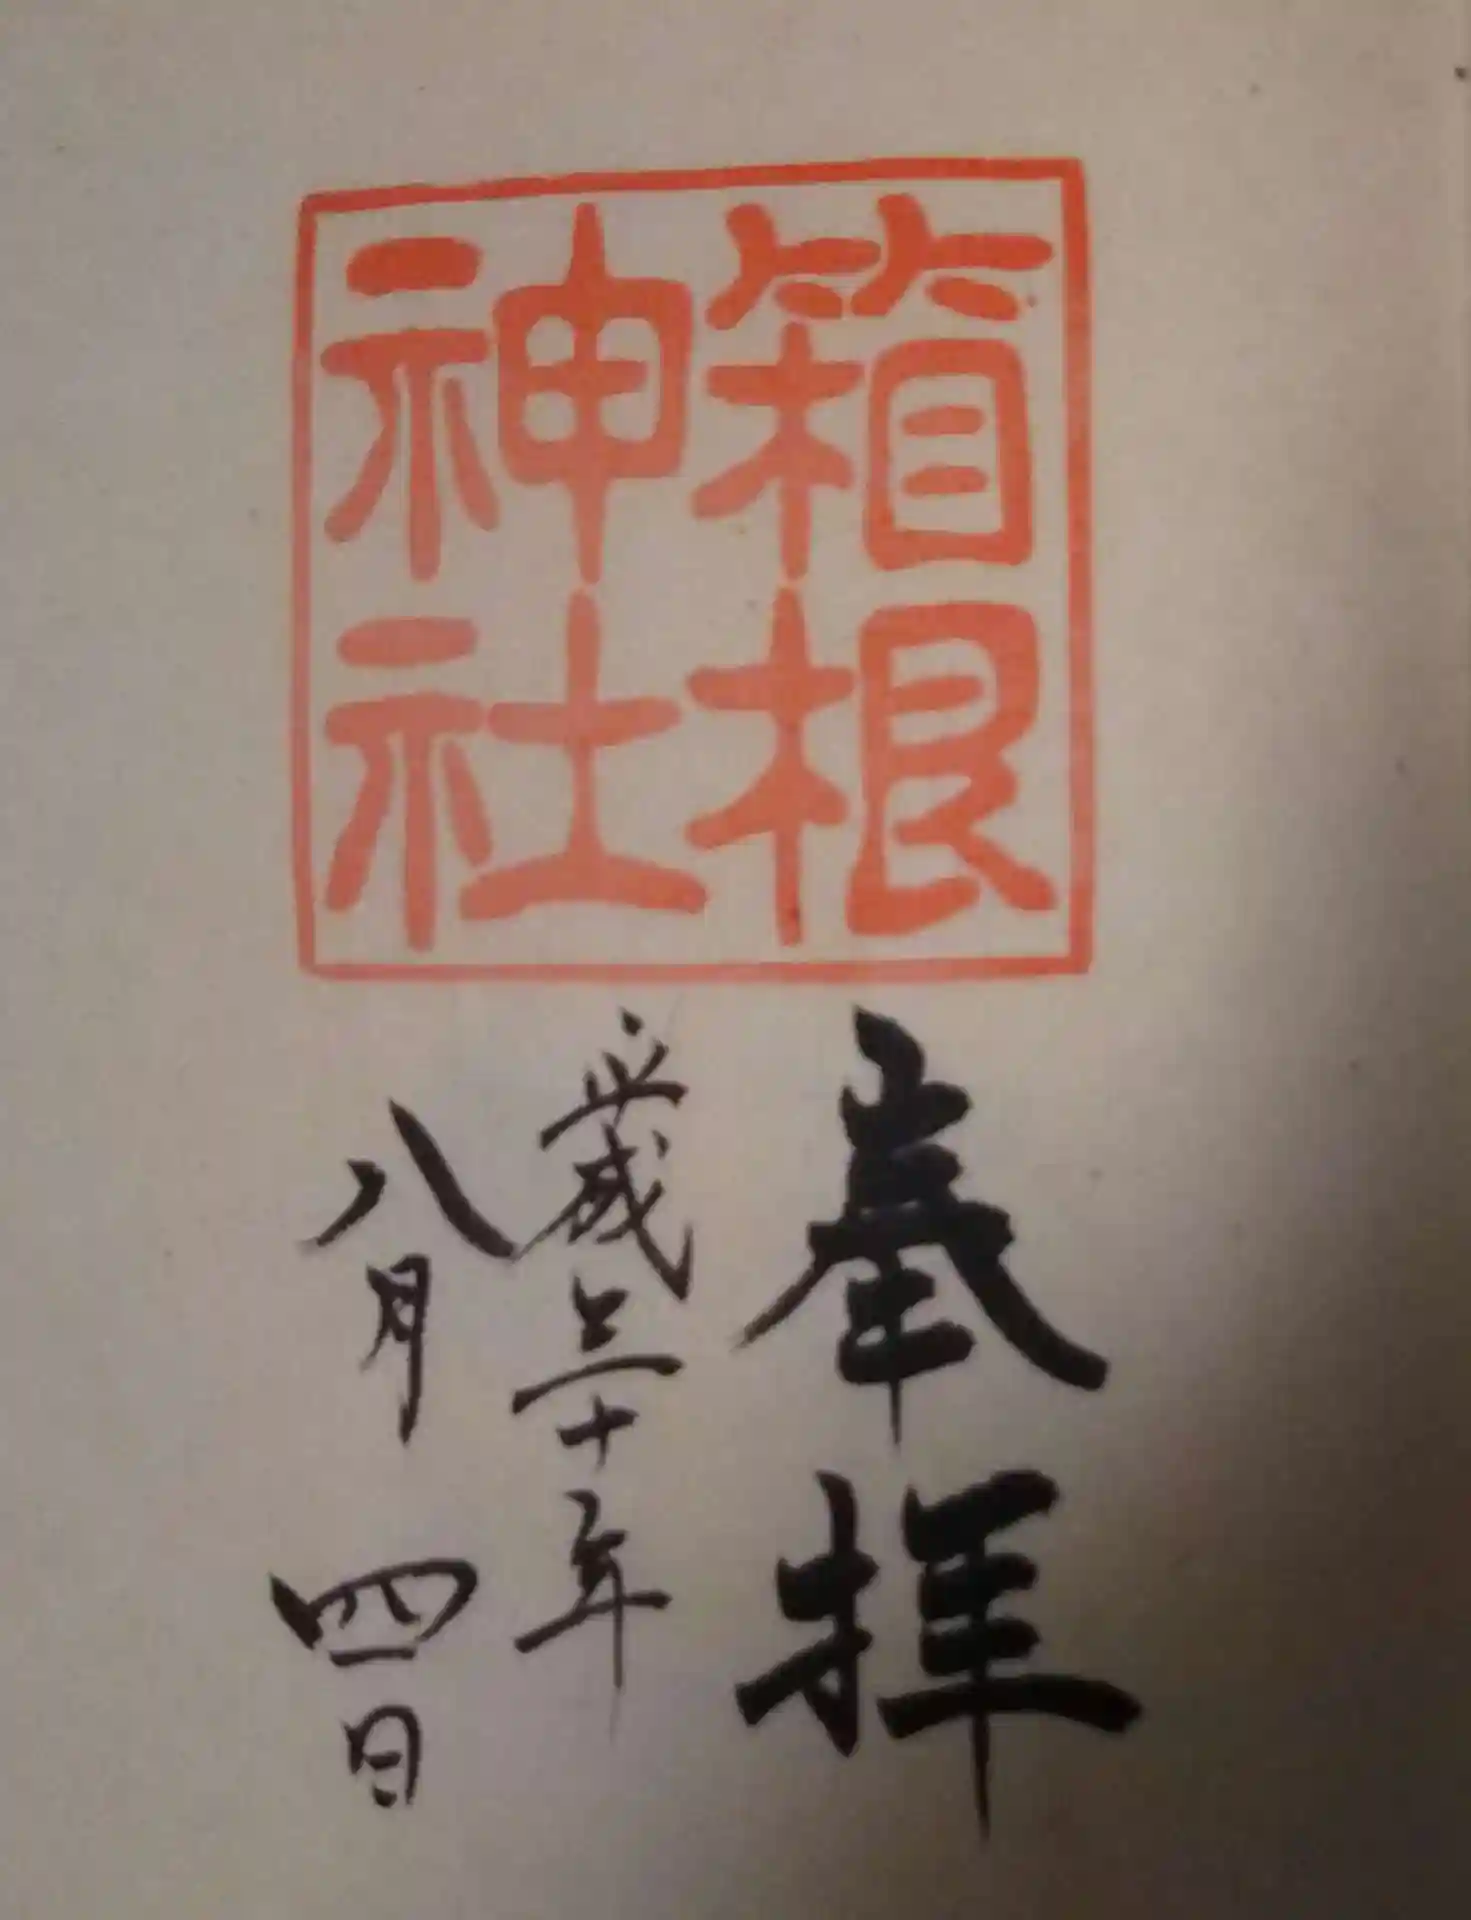 箱根
神社
奉拝
平成三十年
八月四日